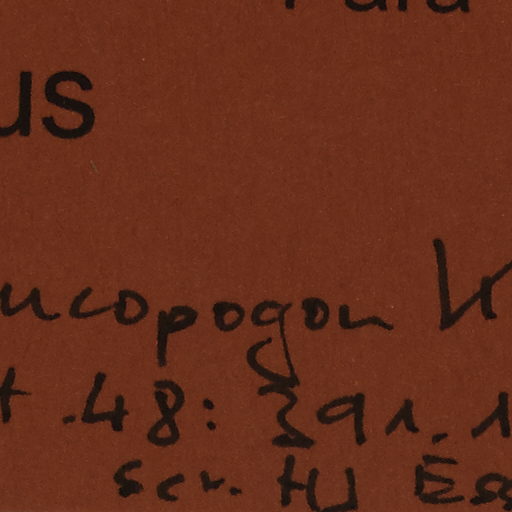 us
ucopogon
.48: 391.1
scr. HJ Ess